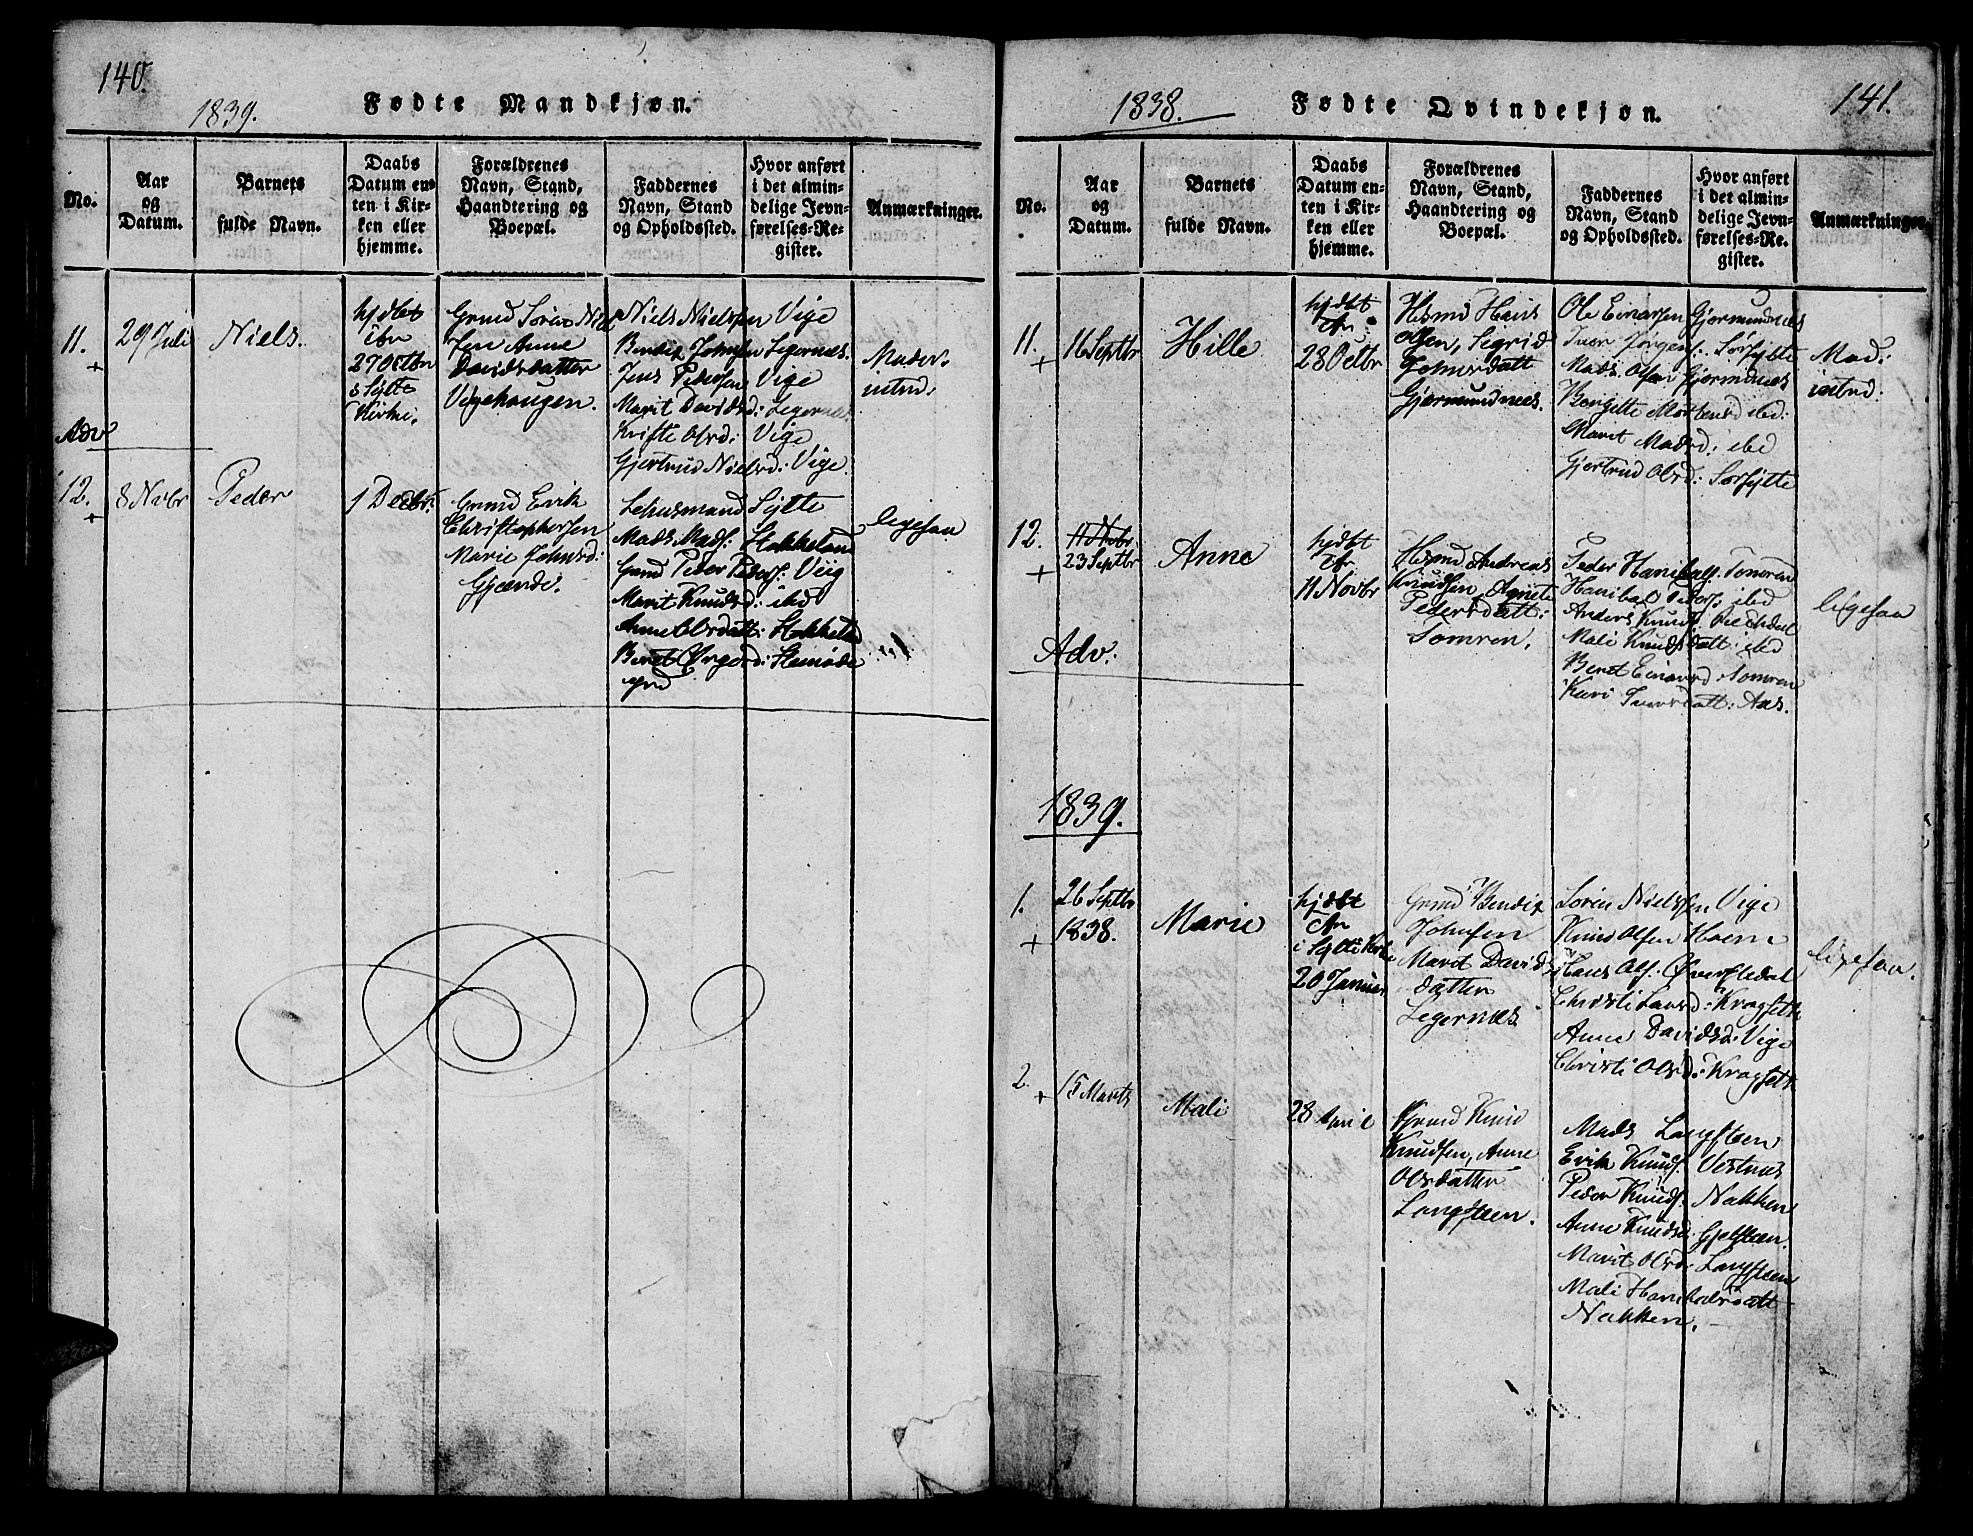 140.
1839.
Fødte Mandkjøn.
No.
Aar
og
Datum.
Barnets
fulde Navn.
Daabs
Datum en-
ten i Kir-
ken eller
hjemme.
Forældrenes
Navn, Stand,
Haandtering og
Boepæl.
Faddernes
Navn, Stand
og Opholdssted.
Hvor anført
i det almin-
delige Jevn-
førelses-Re-
gister.
Anmærkninger.
11.
+
29 Juli
Niels.
hjdbt
Chr
27 Octbr
i Sylte
Kirke.
Grmd Søren Niel
sen Anne
Davidsdatter
Vigehaugen.
Niels Nielssen Vige
Bendix Johnsen Legernæs.
Jens Pedersen Vige
Marit Davidsd: Legernæs.
Kristi Olsd: Vige
Gjertrud Nielsd: Vige.
Adv
12.
+
8 Novbr
Peder
1 Decbr.
Grmd Erik
Christophersen
Marie Johnsd:
Gjærde.
Lehnsmand Sylte
Mads Mads: Hokkeland
Grmd Peder Peders: Veig
Marit Knudsd: ibd
Anne Olsdatt: Hokkeland
ligesaa
141.
1838.
Fødte Qvindekjøn.
No.
Aar
og
Datum.
Barnets
fulde Navn.
Daabs
Datum en-
ten i Kir-
ken eller
hjemme.
Forældrenes
Navn, Stand,
Haandtering og
Boepæl.
Faddernes
Navn, Stand
og Opholdssted.
Hvor anført
i det almin-
delige Jevn-
førelses-Re-
gister.
Anmærkninger
11.
+
16 Septbr
Hille
hjdbt
Chr:
28 Octbr
Hsmd Hans
Olsen, Sigrid
Johnsdatt
Gjermundnæs.
Ole Einarsen Gjermundnæs
Iver Jørgens. Sorsylte
Mads Olsen Gjermdnæs
Bengette Mortensd ibd:
Marit Madsd: ibd
Gjertrud Olsd: Sorsylte
12.
+
11 Novbr.
23 Septbr
Anne
hjdbt
Chr
11 Novbr
Hsmd Andreas
Knudsen, Agnete
Pedersdatt:
Tomren.
Peder Hanibals. Tomren
Hanibal Peders. ibd
Anders Knuds.
Mali Knudsdatt: ibd
Beret Einarsd: Tomren
Kari Iversdatt: Aas.
ligesaa
Adv:
1839.
1.
+
26 Septbr
1838.
Marie
hjdbt
Chr
i Sylte Kirke
20 Januar
Grmd Bendix
Johnsen
Marit Davids
datter
Legernæs
Søren Nielssen Vige
Knud Olsen Hoem
Hans Ols: Øverstedal
Christi Larsd: Kragseth
Anne Davidsd: Vige
Christi Olsd: Kragseth
ligesaa.
2.
+
15 Marts
Mali
28 April
Grmd Knud
Knudsen, Anne
Olsdatter
Langsteen.
Mads Langsteen
Erik Knuds. Vestnæs
Peder Knuds. Nakken
Anne Knudsd. Gjelsteen.
Marit Olsd: Langsteen
Mali Hanibalsdatt
Nakken.